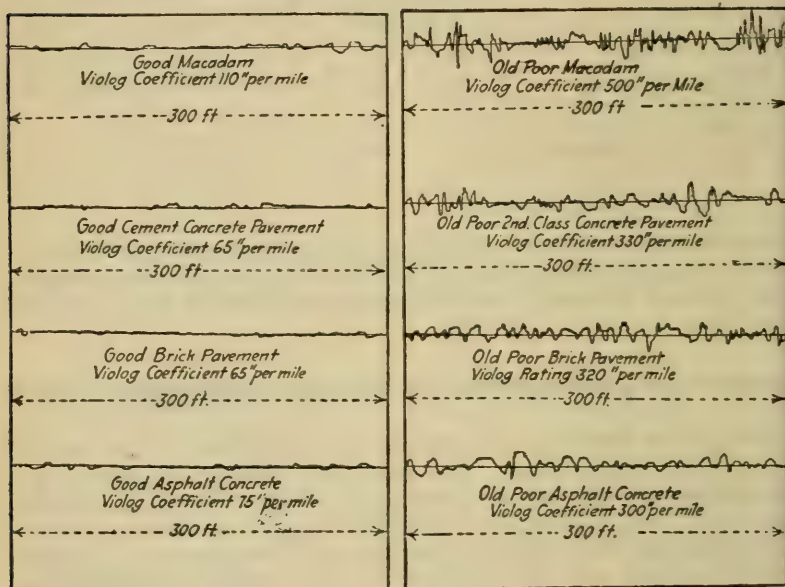 Good Macadam
Violog Coefficient 110" per mile
300 ft
Good Cement Concrete Pavement
Violog Coefficient 65" per mile
300 ft
Good Brick Pavement
Violog Coefficient 65" per mile
300 ft.
Good Asphalt Concrete
Violog Coefficient 75" per mile
300 ft.
Old Poor Macadam
Violog Coefficient 500" per Mile
300 ft.
Old Poor 2nd. Class Concrete Pavement
Violog Coefficient 330" per mile
300 ft.
Old Poor Brick Pavement
Violog Rating 320" per mile
300 ft.
Old Poor Asphalt Concrete
Violog Coefficient 300" per mile
300 ft.